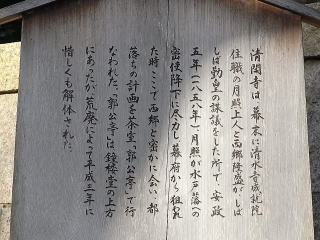 清閑寺は、幕末に清水寺成就院
住職の月照上人と西郷隆盛がしば
しば勤皇の謀議をした所で、安政
五年(一八五八年)月照が水戸藩への
密使降下に尽力し、幕府から狙われ
た時ここで西郷と密かに会い、都
落ちの計画を茶室「郭公亭」で行
なわれた。「郭公亭」は鐘楼堂の上方
にあったが荒廃によって平成三年に
惜しくも解体された。